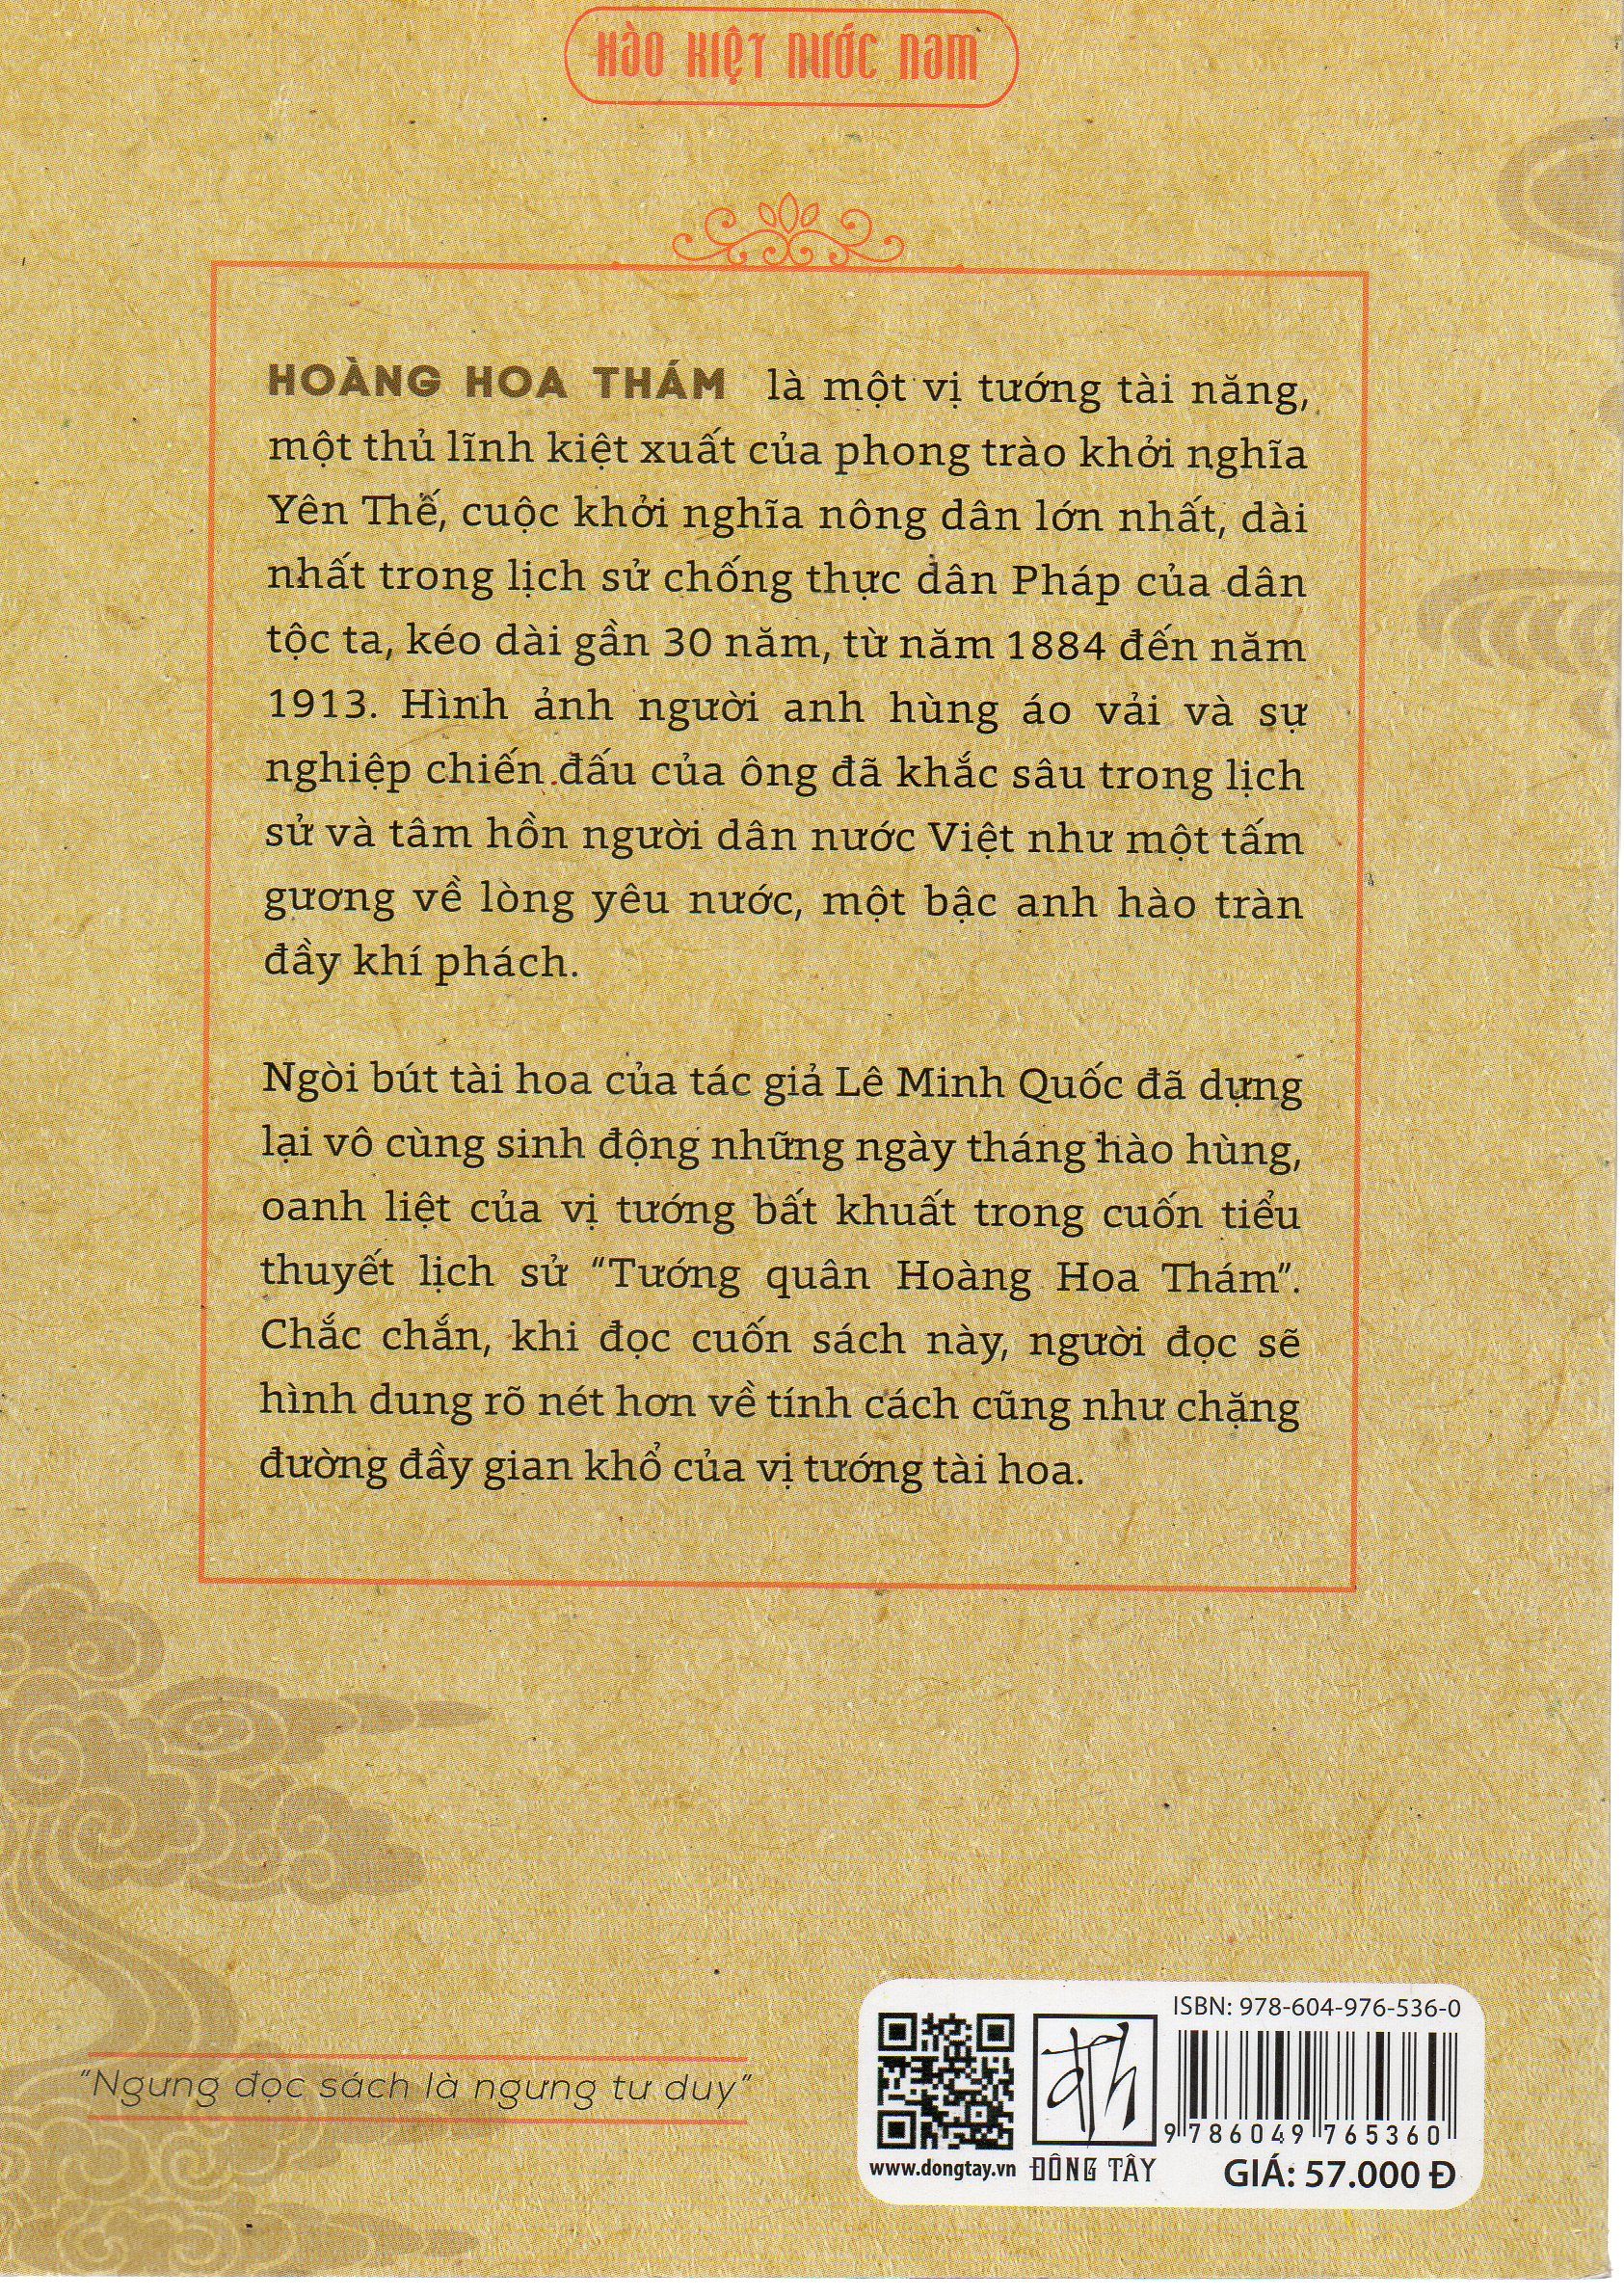 HÀO KIỆT NƯỚC NAM
HOÀNG HOA THÁM là một vị tướng tài năng,
một thủ lĩnh kiệt xuất của phong trào khởi nghĩa
Yên Thế, cuộc khởi nghĩa nông dân lớn nhất, dài
nhất trong lịch sử chống thực dân Pháp của dân
tộc ta, kéo dài gần 30 năm, từ năm 1884 đến năm
1913. Hình ảnh người anh hùng áo vải và sự
nghiệp chiến đấu của ông đã khắc sâu trong lịch
sử và tâm hồn người dân nước Việt như một tấm
gương về lòng yêu nước, một bậc anh hào tràn
đầy khí phách.
Ngòi bút tài hoa của tác giả Lê Minh Quốc đã dựng
lại vô cùng sinh động những ngày tháng hào hùng,
oanh liệt của vị tướng bất khuất trong cuốn tiểu
thuyết lịch sử “Tướng quân Hoàng Hoa Thám”.
Chắc chắn, khi đọc cuốn sách này, người đọc sẽ
hình dung rõ nét hơn về tính cách cũng như chặng
đường đầy gian khổ của vị tướng tài hoa.
“Ngưng đọc sách là ngưng tư duy”
ISBN: 978-604-976-536-0
9 786049 765360
www.dongtay.vn
ĐÔNG TÂY
GIÁ: 57.000 Đ